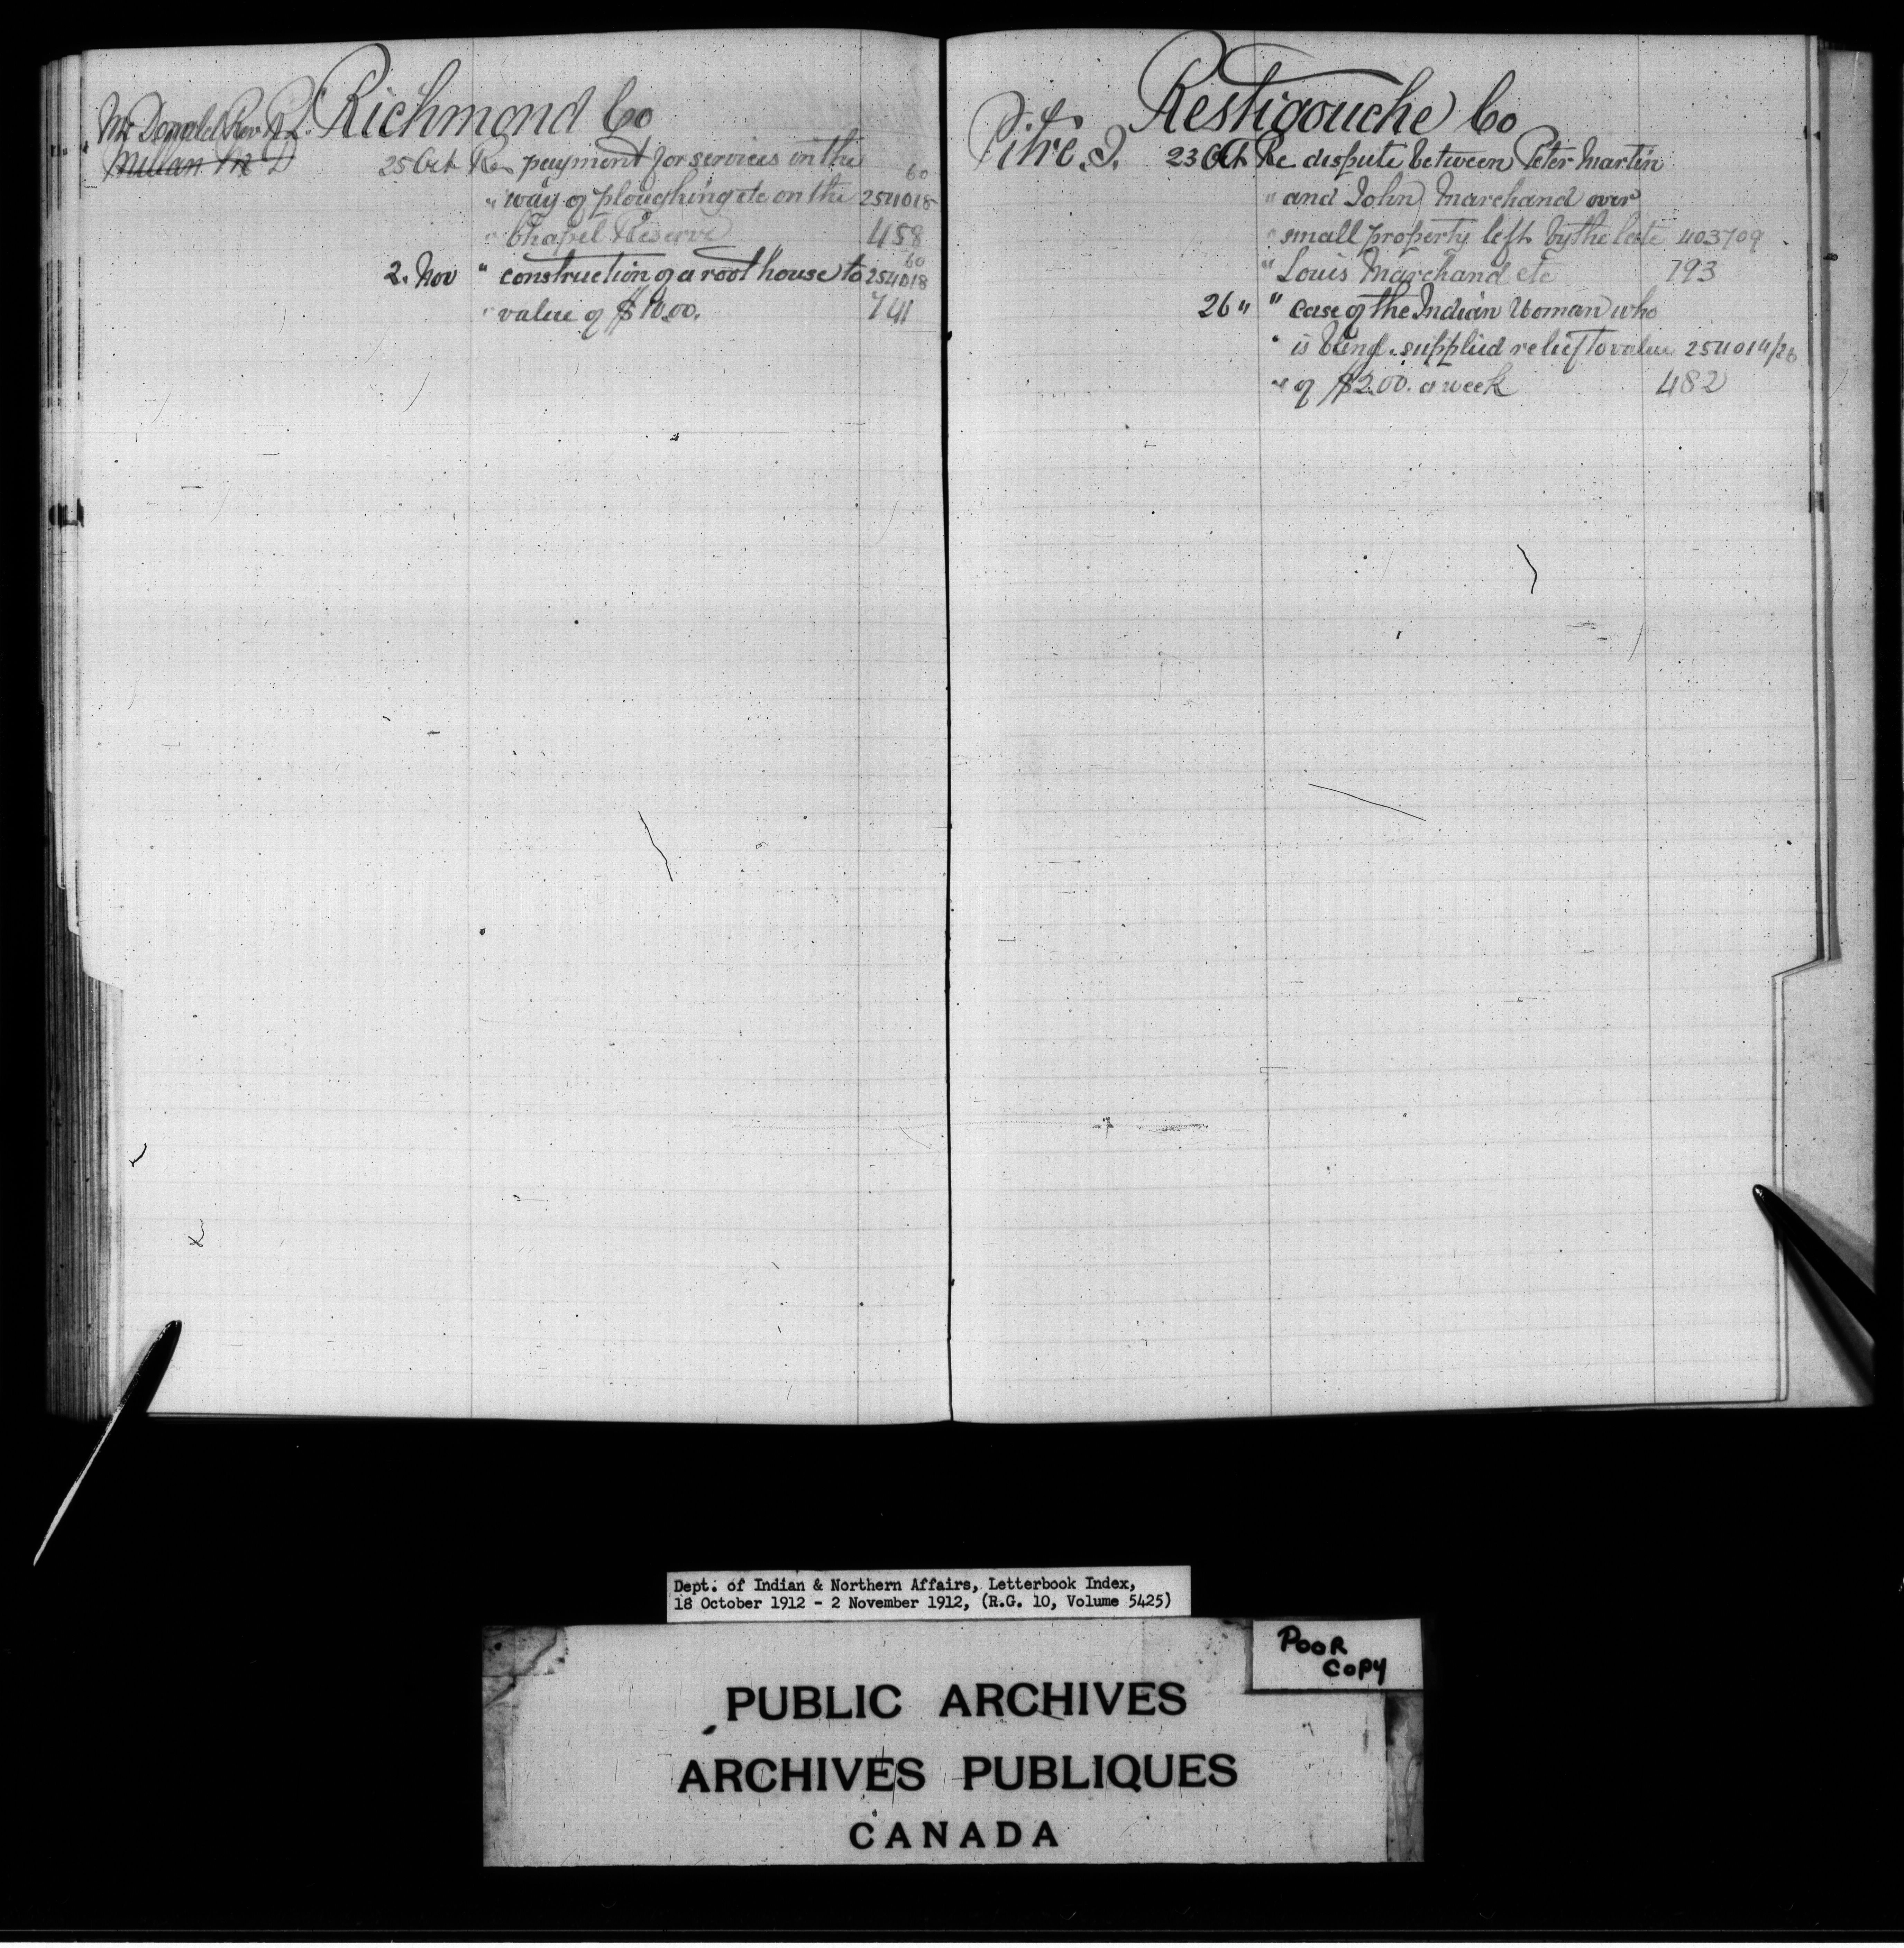 Richmond Co
McDonald Rev R. L.
Millan Mc D
25 Oct Re payment for services in the 60
" way of ploughing etc on the 254018
" Chapel Reserve 458
2. Nov " construction of a root house to 60 254018
" value of $10.00. 741
Restigouche Co
Pitre J. 23 Oct Re dispute between Peter Martin
" and John Marchand over
" small property left by the late 403709
" Louis Marchand etc 193
26 " " case of the Indian Woman who
" is being supplied relief to value 254014/26
" of $2.00. a week 482
Dept. of Indian & Northern Affairs, Letterbook Index,
18 October 1912 - 2 November 1912, (R.G. 10, Volume 5425)
POOR
COPY
PUBLIC ARCHIVES
ARCHIVES PUBLIQUES
CANADA